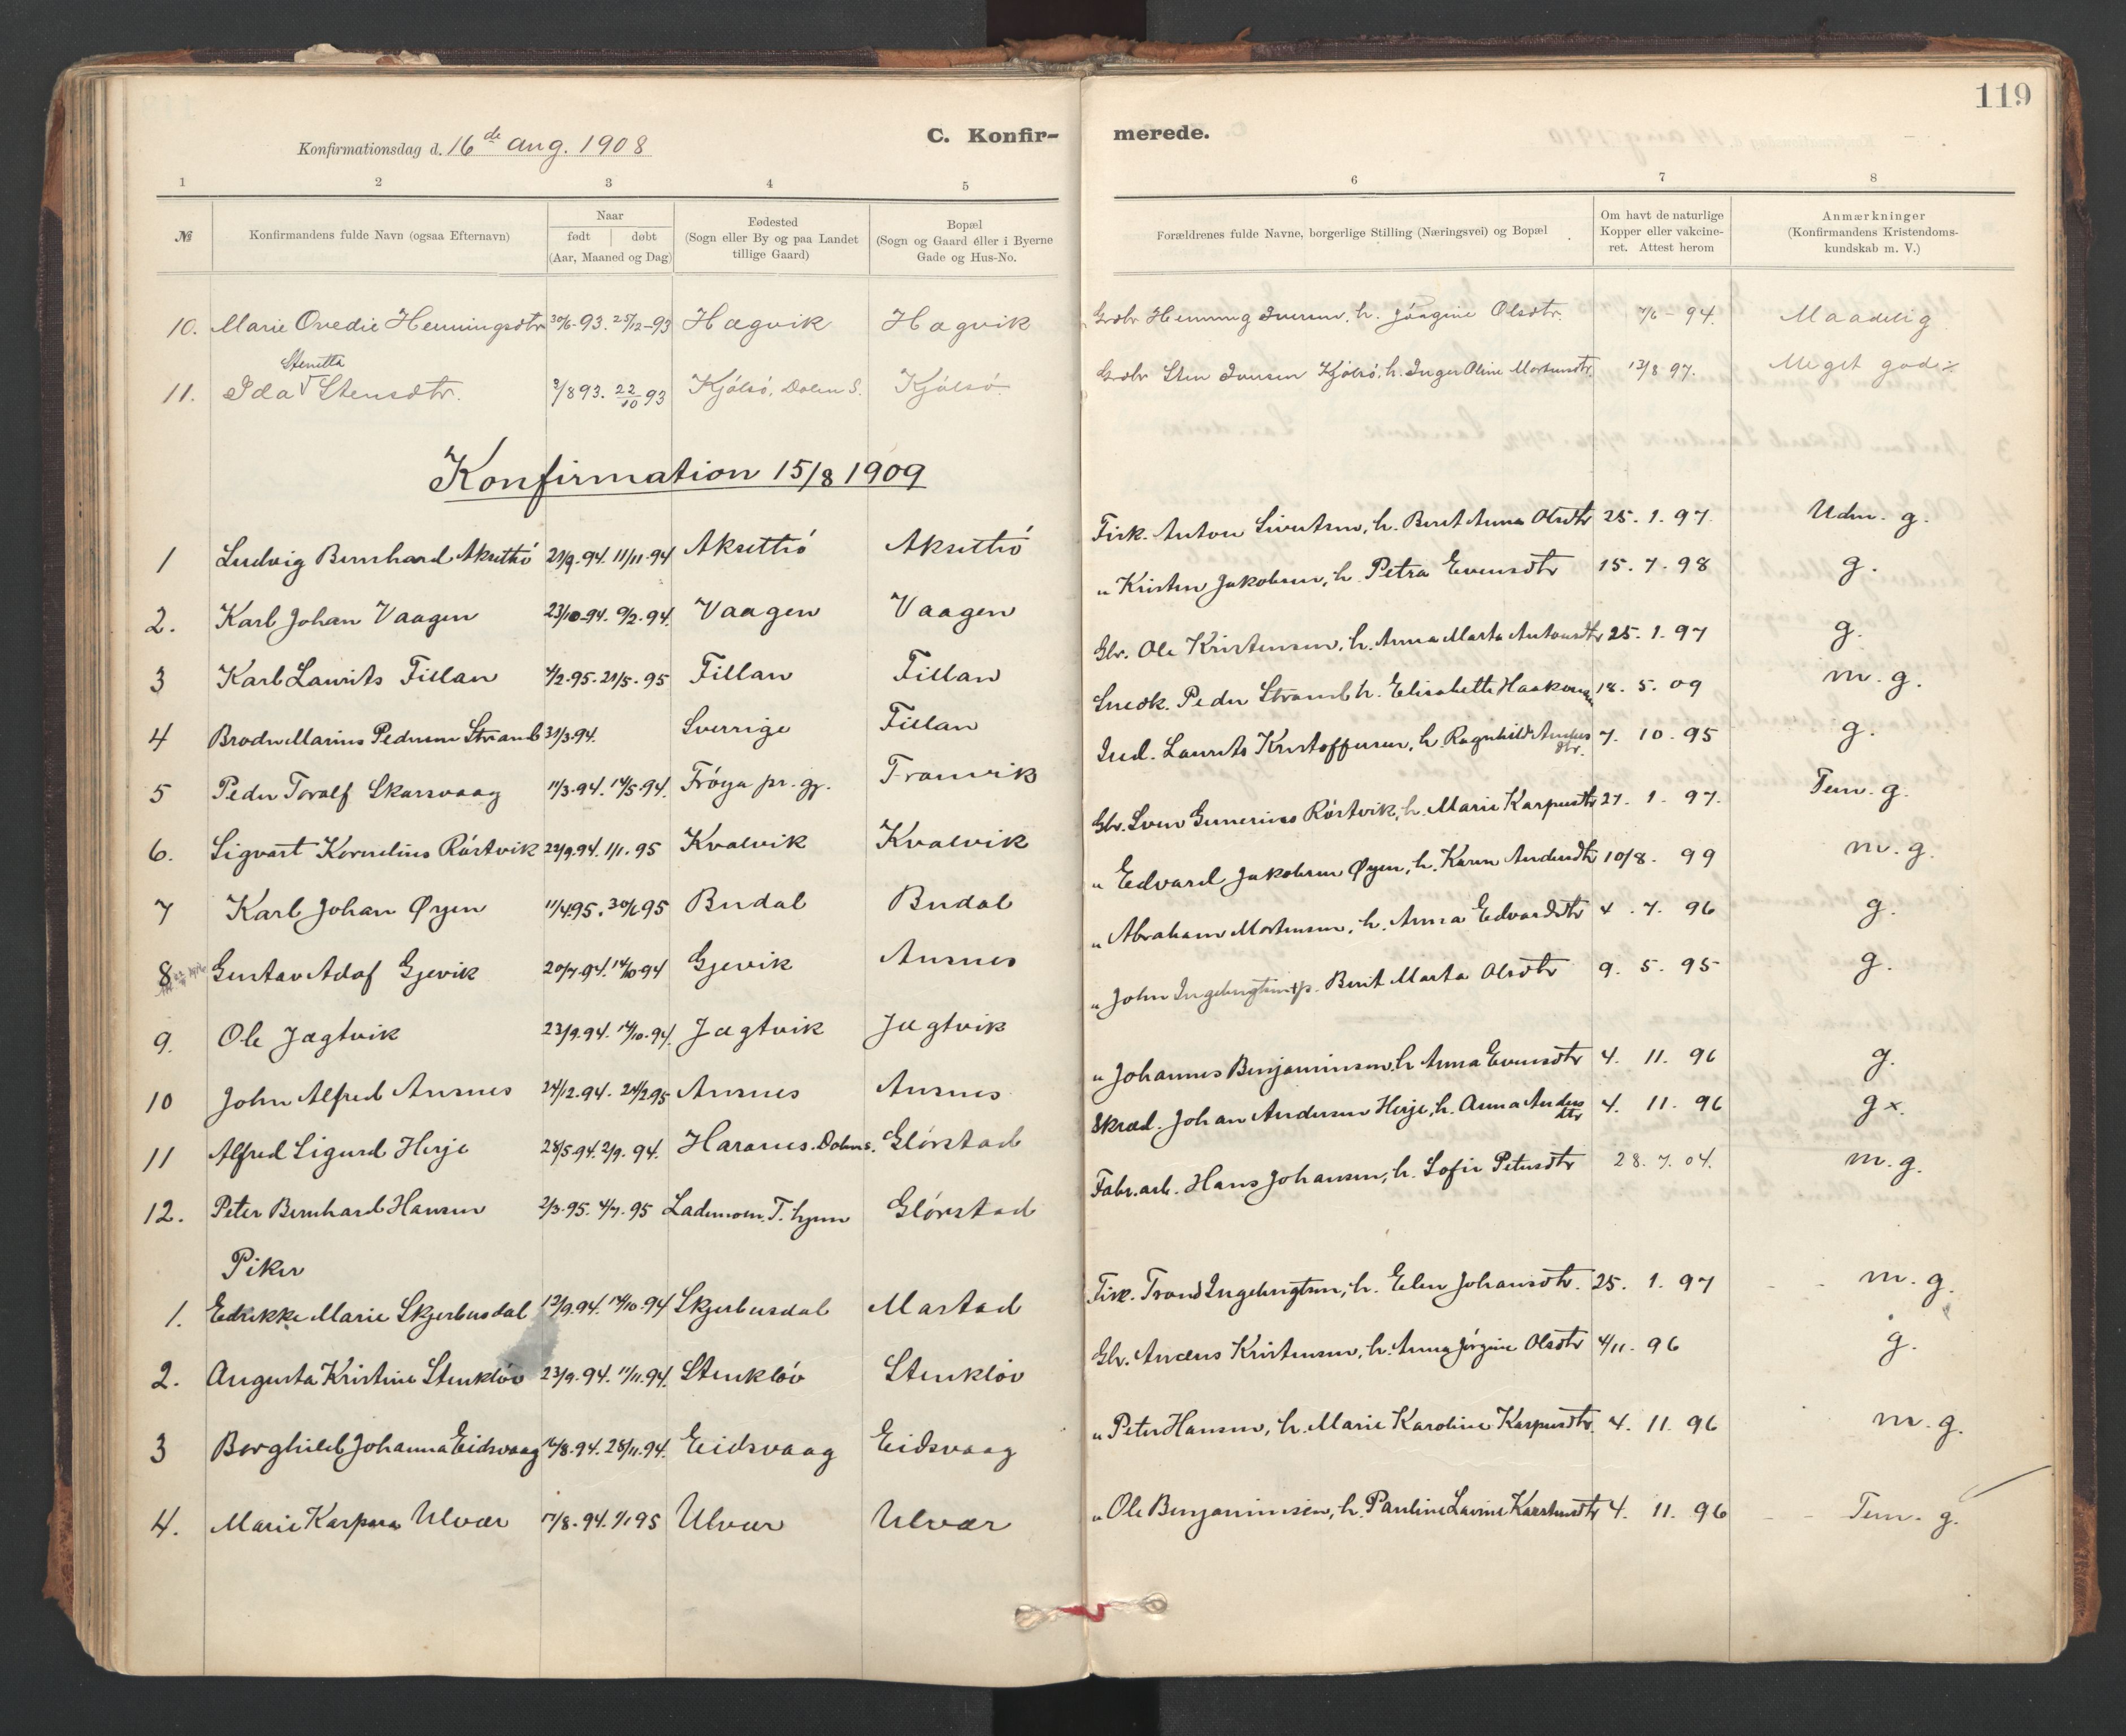 119
Konfirmationsdag d. 16de aug. 1908
C. Konfir- merede.
1 2 3 4 5 6 7 8
№ Konfirmandens fulde Navn (ogsaa Efternavn) Naar født | døbt (Aar, Maaned og Dag) Fødested (Sogn eller By og paa Landet tillige Gaard) Bopæl (Sogn og Gaard eller i Byerne Gade og Hus-No. Forældrenes fulde Navne, borgerlige Stilling (Næringsvei) og Bopæl Om havt de naturlige Kopper eller vakcineret. Attest herom Anmærkninger (Konfirmandens Kristendomskundskab m. V.)
10. Marie Ovedie Henningsdtr 30/6-93. 25/12-93 Hagvik Hagvik Grdbr Henning Iversen, h. Jørgine Olsdtr. 7/6-94. Maadelig
11. Ida Stenette Stensdtr. 2/8 93. 22/10 93 Kjølsø, Dolm S. Kjølsø Grdbr Sten Iversen Kjølsø, h. Inger Oline Mortensdtr. 13/8 97. Meget godt
Konfirmation 15/8 1909
1 Ludvig Bernhard Aksettrö 21/9.94. 11/11.94 Aksettrö Aksettrö Fisk. Anton Sivertsen, h. Berit Anna Olsdtr 25. 1. 97. Udm. g.
2. Karl Johan Vaagen 23/10-94. 9/2.94. Vaagen Vaagen " Kristen Jakobsen, h. Petra Evensdtr 15. 7. 98 g.
3 Karl Laurits Fillan 4/2.95. 21/5.95 Fillan Fillan Gbr. Ole Kristensen, h. Anna Marta Antonsdtr 25. 1. 97 g.
4 Broder Marius Pedersen Strand 31/3.94. Sverrige Fillan Snedk. Peder Strand h. Elisabette Haakonsen 18. 5. 09 m. g.
5 Peder Toralf Skarsvaag 11/3.94. 14/5.94. Frøya pr. gj. Tranvik Ind. Laurits Kristoffersen, h. Ragnhild Andersdtr. 7. 10. 95 g.
6. Sigvart Kornelius Röstvik 22/9.94. 1/1.95 Kvalvik Kvalvik Gbr. Sven Gunerius Röstvik, h. Marie Karpusdtr 27. 1. 97. Tem. g.
7 Karl Johan Øyen 11/4.95. 30/6 95 Budal Budal " Edvard Jakobsen Øyen, h. Karen Andersdtr 10/8. 99 m. g.
8 Gustav Adof Gjevik 20/7.94. 14/10 94 Gjevik Ansnes " Abraham Mortensen, h. Anna Edvardsdtr 4. 7. 96 g.
9. Ole Jægtvik 23/9.94. 14/10.94. Jægtvik Jægtvik " John Ingebrigtsen p. Berit Marta Olsdtr 9. 5. 95 g.
10 John Alfred Ansnes 24/12.94. 24/2 95 Ansnes Ansnes " Johannes Benjaminsen, h Anna Evensdtr 4. 11. 96 g.
11 Alfred Sigurd Herje 28/5.94. 2/9. 94. Haranes. Dolm s. Glörstad Skræd. Johan Andersen Herje, h. Anna Andersdtr 4. 11. 96 g x.
12. Peter Bernhard Hansen 2/3.95. 4/7.95 Lademoen. T.hjem Glörstad Fabr.arb. Hans Johansen, h. Sofie Petersdtr 28. 7. 04. m. g.
Piker
1. Edrikke Marie Skjerbusdal 12/9.94. 14/10.94 Skjerbusdal Mastad Fisk. Trond Ingebrigtsen, h. Elen Johansdtr. 25. 1. 97 m. g.
2. Augusta Kristine Stenklöv 23/9.94. 11/11.94. Stenklöv Stenklöv Gbr. Anders Kristensen, h. Anna Jörgine Olsdtr 4/11. 96 g.
3 Borghild Johanna Eidsvaag 16/8.94. 25/11.94. Eidsvaag Eidsvaag " Peter Hansen, h. Marie Karoline Kaspersdtr. 4. 11. 96 m. g.
4. Marie Karpara Ulvær 17/8.94. 1/1 95 Ulvær Ulvær " Ole Benjaminsen, h. Pauline Lavine Karstensdtr 4. 11. 96 Tem. g.